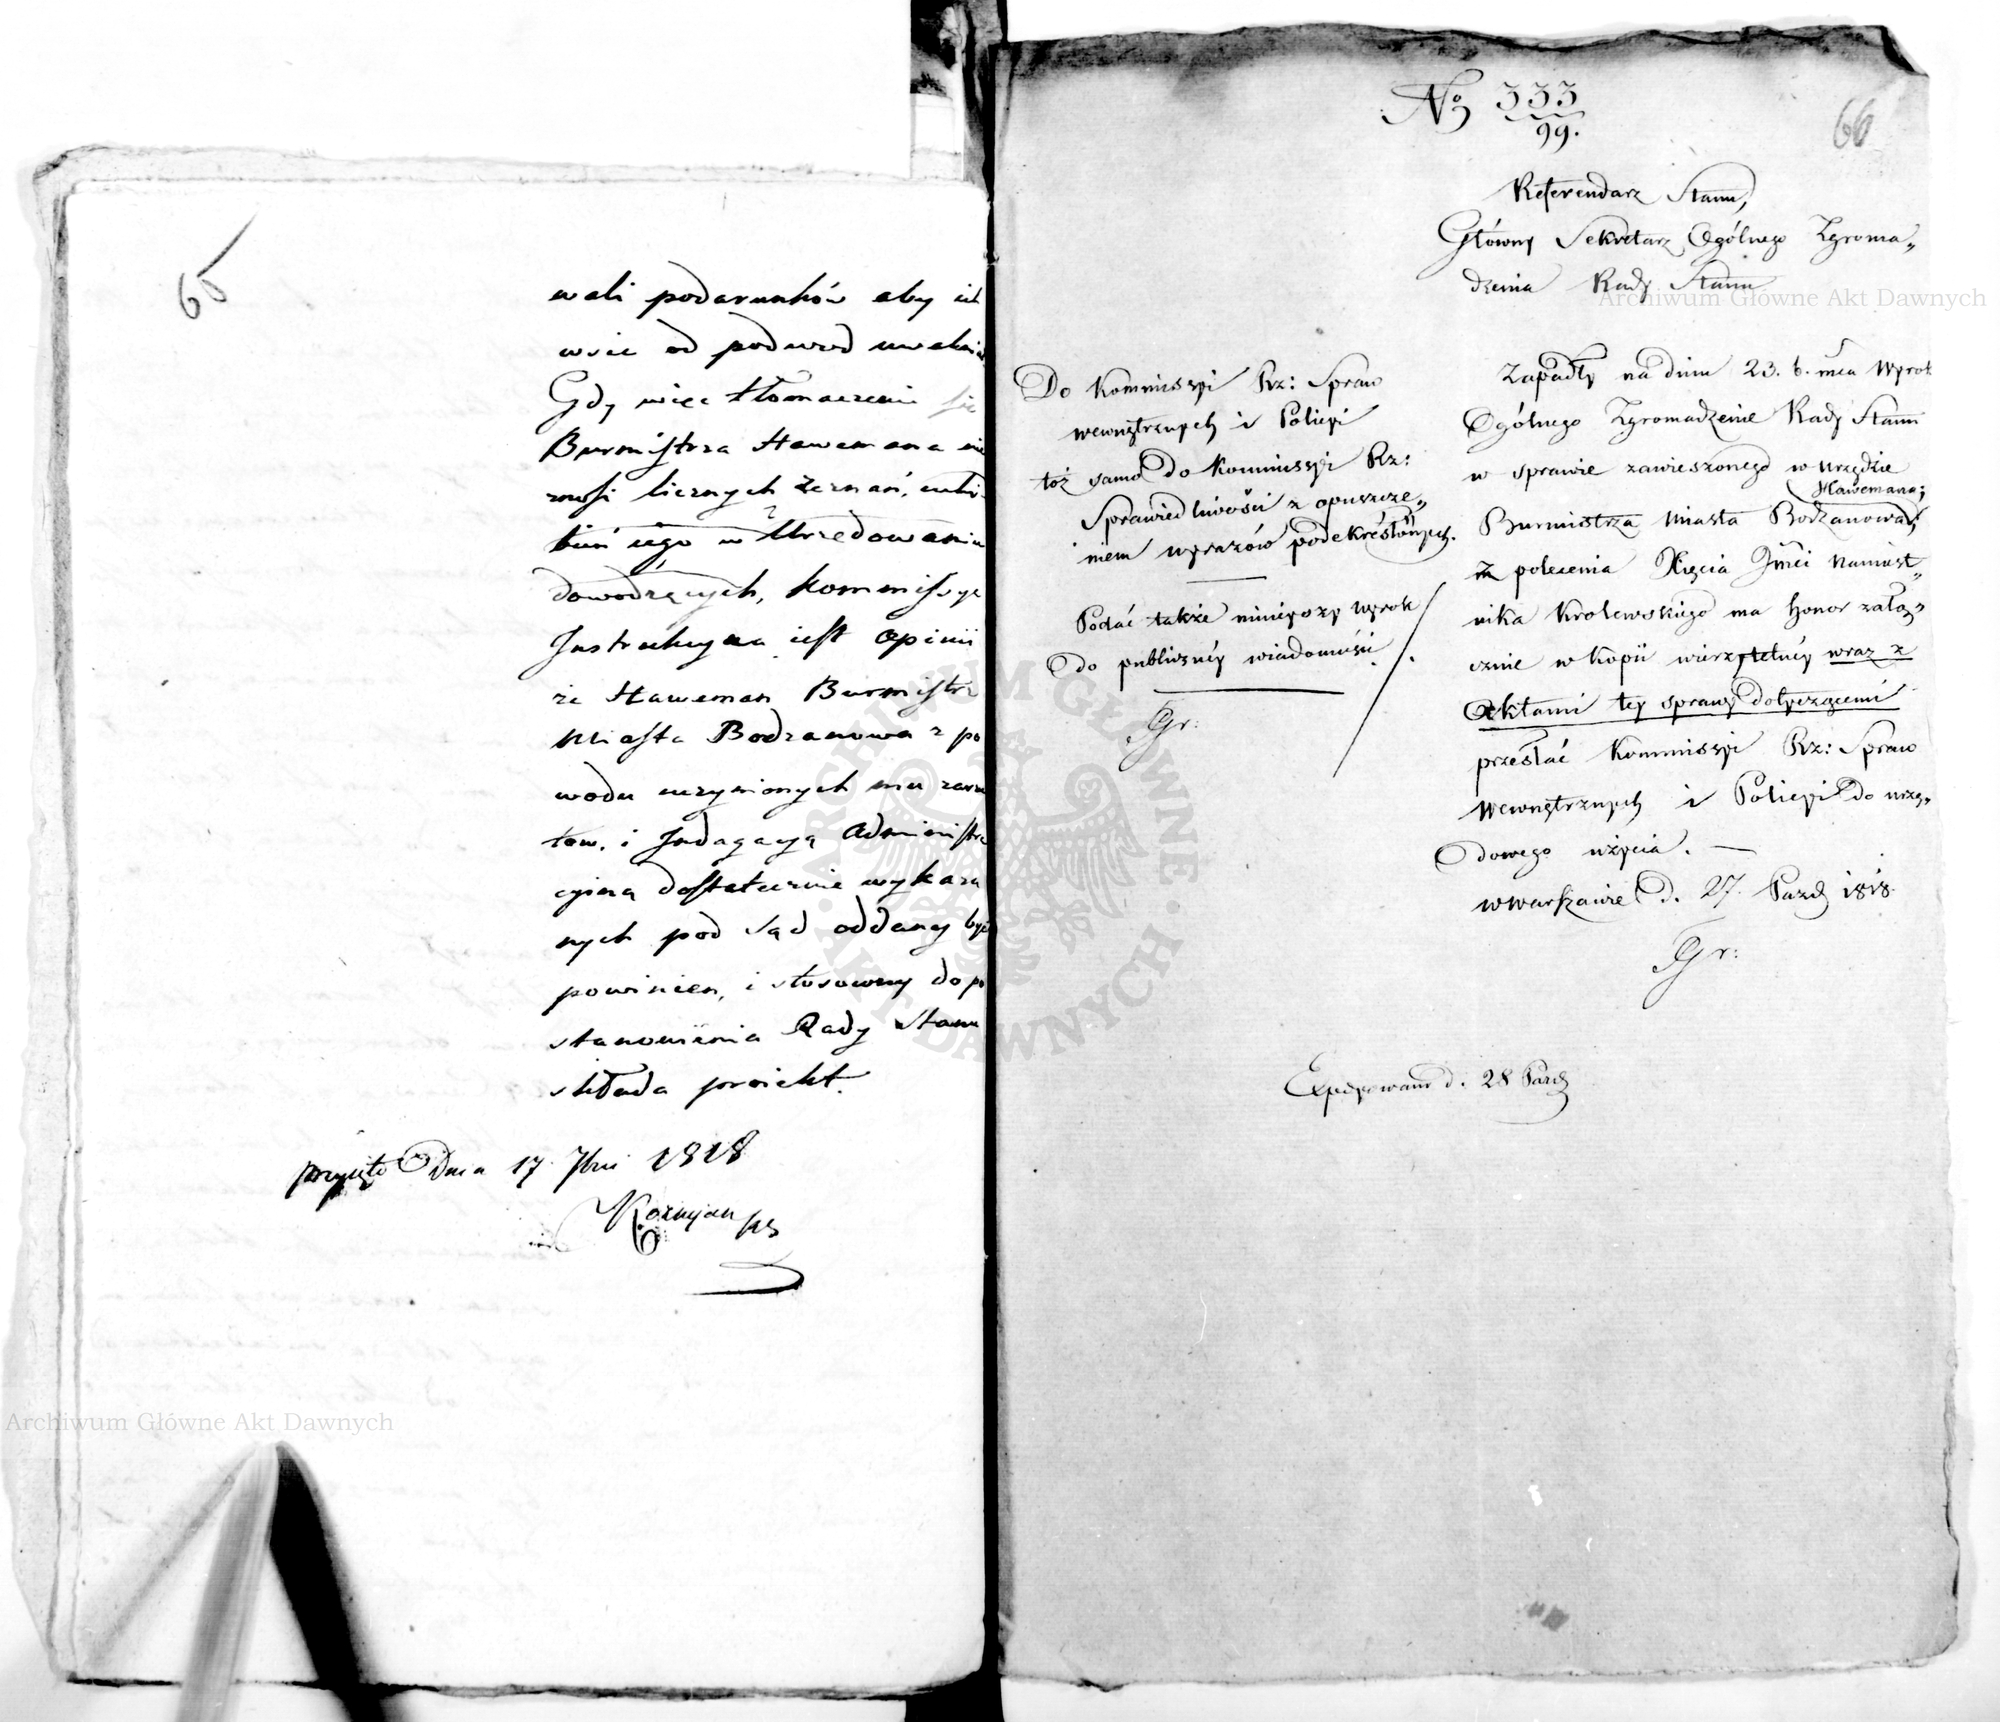 65
wali podarunków aby ich
wsie od podwod uwalniał
Gdy więc tłomaczenie się
Burmistrza Haweman nie
znosi licznych zeznań, uchy-
bień iego w Urzędowaniu
dowodzących, kommissya
Instrukcyjna iest opinii
że Haweman Burmistrz
Miasta Bodzanowa z po
wodu uczynionych mu zarzu
tów, i Indagacyą Administra
cyiną dostatecznie wykaza
nych pod sąd oddany być
powinien, i stosowny do po
stanowienia Rady Stanu
składa proiekt.
przyięto Dnia 17 7bri 1818
Koźmian
No 333
99.
66
Referendarz Stanu,
Główny Sekretarz Ogólnego Zgroma„
dzenia Rady Stanu
Do Kommissyi Rz: Spraw
wewnętrznych i Policyi
toż samo do Kommissyi Rz:
Sprawiedliwości z opuszcze„
niem wyrazów podekreślonych.
Podać także ninieyszy wyrok
do publicznéy wiadomości
Gr:
Zapadły na dniu 23. b. mca Wyrok
Ogólnego Zgromadzenie Rady Stanu
w sprawie zawieszonego w urzędzie
Hawemana;
Burmistrza Miasta Bodzanowa,
z polecenia Xięcia Jmci Namiest„
nika Krolewskiego ma honor załą„
cznie w kopii wierzytelnéy wraz z
Aktami tey sprawy dotyczącemi
przesłać Kommissyi Rz: Spraw
Wewnętrznych i Policyi do urzę„
dowego użycia. —
w Warszawie d. 27. Paźd 1818
Gr:
Expedyowano d. 28 Paźd
Archiwum Główne Akt Dawnych
Archiwum Główne Akt Dawnych
ARCHIWUM GŁÓWNE AKT DAWNYCH